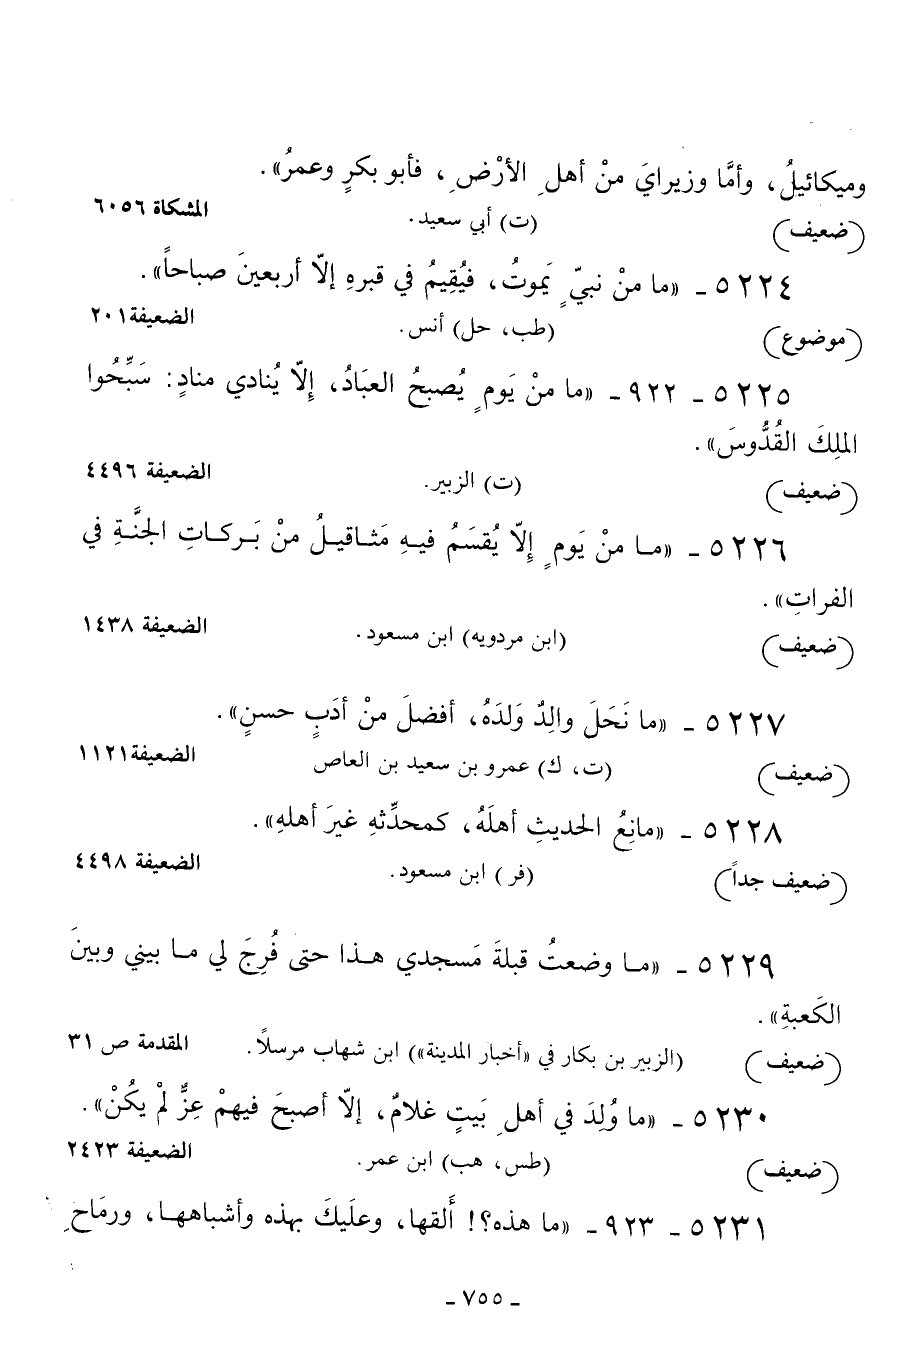 وميكائيلُ، وأمَّا وزيرايَ منْ أهلِ الأرْضِ، فأبو بكرٍ وعمرُ».
(ضعيف) (ت) أبي سعيد. المشكاة ٦٠٥٦
٥٢٢٤ ـ «ما منْ نبيٍّ يَموتُ، فيُقِيمُ في قبرهِ إلاّ أربعينَ صباحاً».
(موضوع) (طب، حل) أنس. الضعيفة ٢٠١
٥٢٢٥ ـ ٩٢٢ ـ «ما منْ يَومٍ يُصبحُ العبَادُ، إِلاّ يُنادي منادٍ: سَبِّحُوا
الملِكَ القُدُّوسَ».
(ضعيف) (ت) الزبير. الضعيفة ٤٤٩٦
٥٢٢٦ ـ «ما منْ يَومٍ إِلاّ يُقسَمُ فيهِ مَثاقيلُ منْ بَركاتِ الجنَّةِ في
الفراتِ».
(ضعيف) (ابن مردويه) ابن مسعود. الضعيفة ١٤٣٨
٥٢٢٧ ـ «ما نَحَلَ والِدٌ وَلدَهُ، أفضلَ منْ أدَبٍ حسنٍ».
(ضعيف) (ت، ك) عمرو بن سعيد بن العاص الضعيفة ١١٢١
٥٢٢٨ ـ «مانِعُ الحديثِ أهلَهُ، كمحدِّثهِ غيرَ أهلهِ».
(ضعيف جداً) (فر) ابن مسعود. الضعيفة ٤٤٩٨
٥٢٢٩ ـ «ما وضعتُ قبلةَ مَسجدي هذا حتى فُرِجَ لي ما بيني وبينَ
الكَعبةِ».
(ضعيف) (الزبير بن بكار في «أخبار المدينة») ابن شهاب مرسلاً. المقدمة ص ٣١
٥٢٣٠ ـ «ما وُلِدَ في أهلِ بَيتٍ غلامٌ، إلاّ أصبحَ فيهمْ عِزٌّ لمْ يكُنْ».
(ضعيف) (طس، هب) ابن عمر. الضعيفة ٢٤٢٣
٥٢٣١ ـ ٩٢٣ ـ «ما هذه؟! أَلقها، وعلَيكَ بهذه وأشباهها، ورمَاحِ
ـ ٧٥٥ ـ